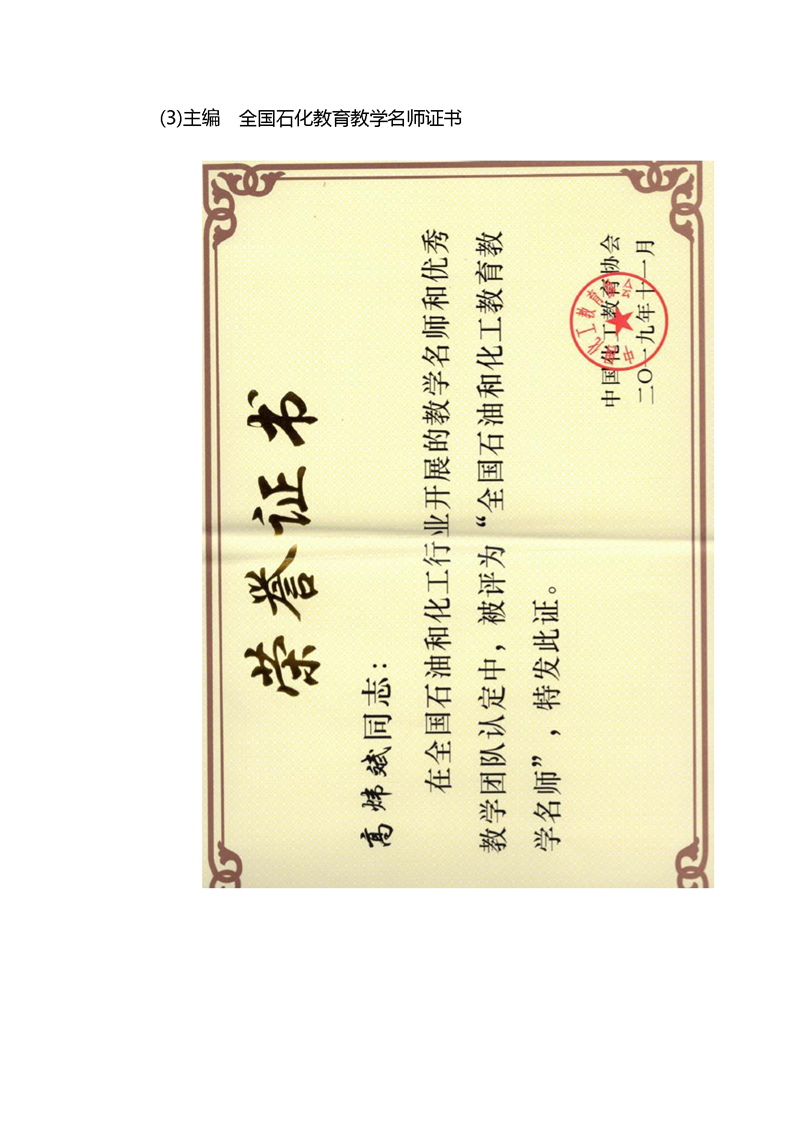 (3)主编　全国石化教育教学名师证书
荣誉证书
高炜斌同志：
在全国石油和化工行业开展的教学名师和优秀
教学团队认定中，被评为“全国石油和化工教育教
学名师”，特发此证。
中国化工教育协会
二〇一九年十一月